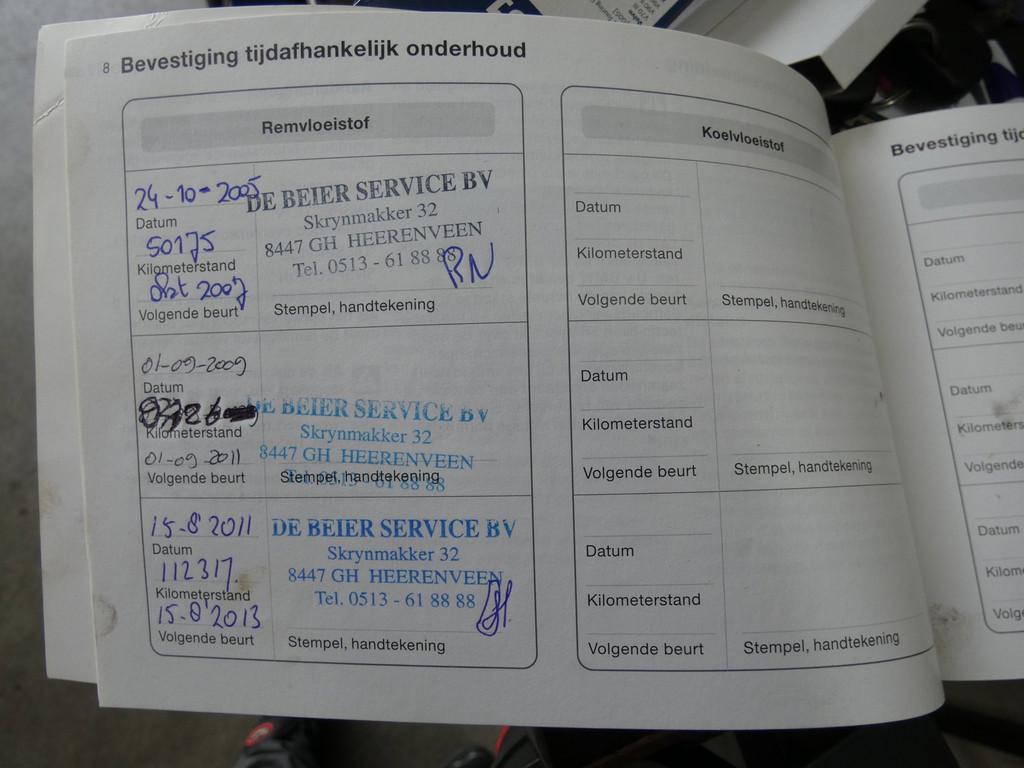 8 Bevestiging tijdafhankelijk onderhoud
Remvloeistof
24-10-2005
Datum
50175
Kilometerstand
okt 2007
Volgende beurt
DE BEIER SERVICE BV
Skrynmakker 32
8447 GH HEERENVEEN
Tel. 0513 - 61 88 88
RN
Stempel, handtekening
01-09-2009
Datum
Kilometerstand
01-09-2011
Volgende beurt
DE BEIER SERVICE BV
Skrynmakker 32
8447 GH HEERENVEEN
Tel. 0513 - 61 88 88
Stempel, handtekening
15-8 2011
Datum
112317.
Kilometerstand
15-8 2013
Volgende beurt
DE BEIER SERVICE BV
Skrynmakker 32
8447 GH HEERENVEEN
Tel. 0513 - 61 88 88
Stempel, handtekening
Koelvloeistof
Datum
Kilometerstand
Volgende beurt
Stempel, handtekening
Datum
Kilometerstand
Volgende beurt
Stempel, handtekening
Datum
Kilometerstand
Volgende beurt
Stempel, handtekening
Bevestiging tijd
Datum
Kilometerstand
Volgende beu
Datum
Kilometers
Volgende
Datum
Kilom
Volge